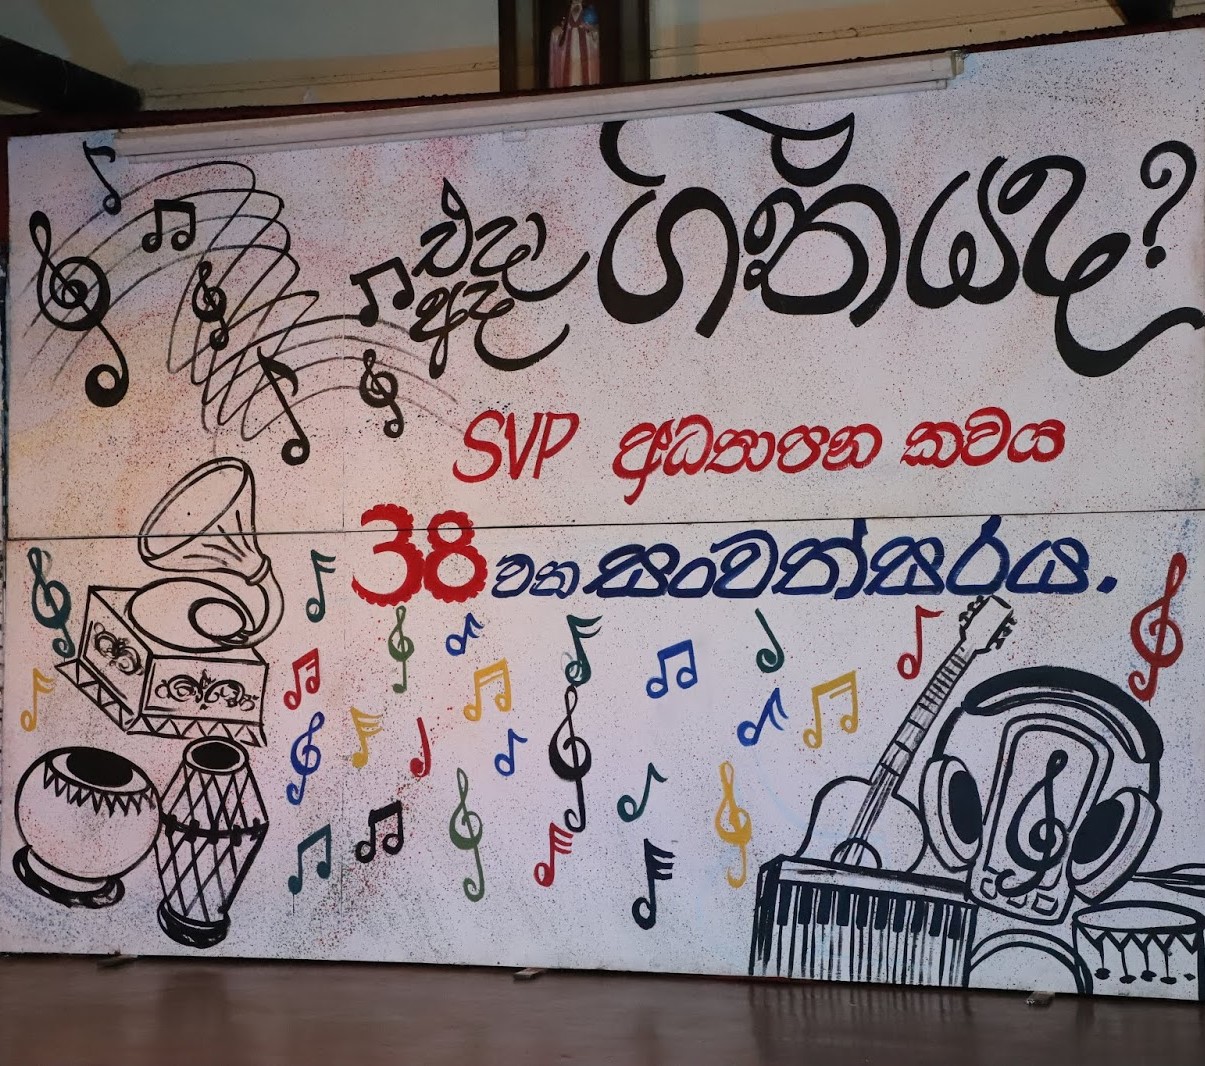 එදා ගීතයද?
අද
SVP අධ්‍යාපන කවය
38 වන සංවත්සරය.